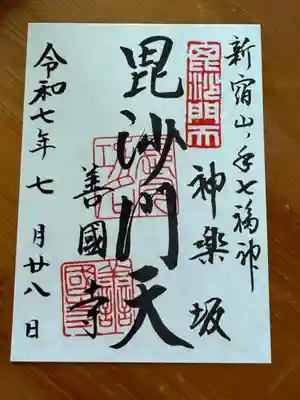 新宿山ノ手七福神
毘沙門天
神楽坂
毘沙門天
善國寺
令和七年七月廿八日